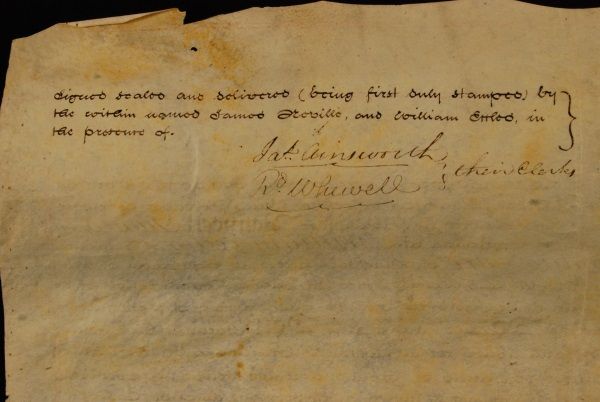 Signed sealed and delivered (being first duly stamped) by
the within named James Neville, and William Eccles, in
the presence of.
Jas. Ainsworth
Rd. Whewell } their Clerks